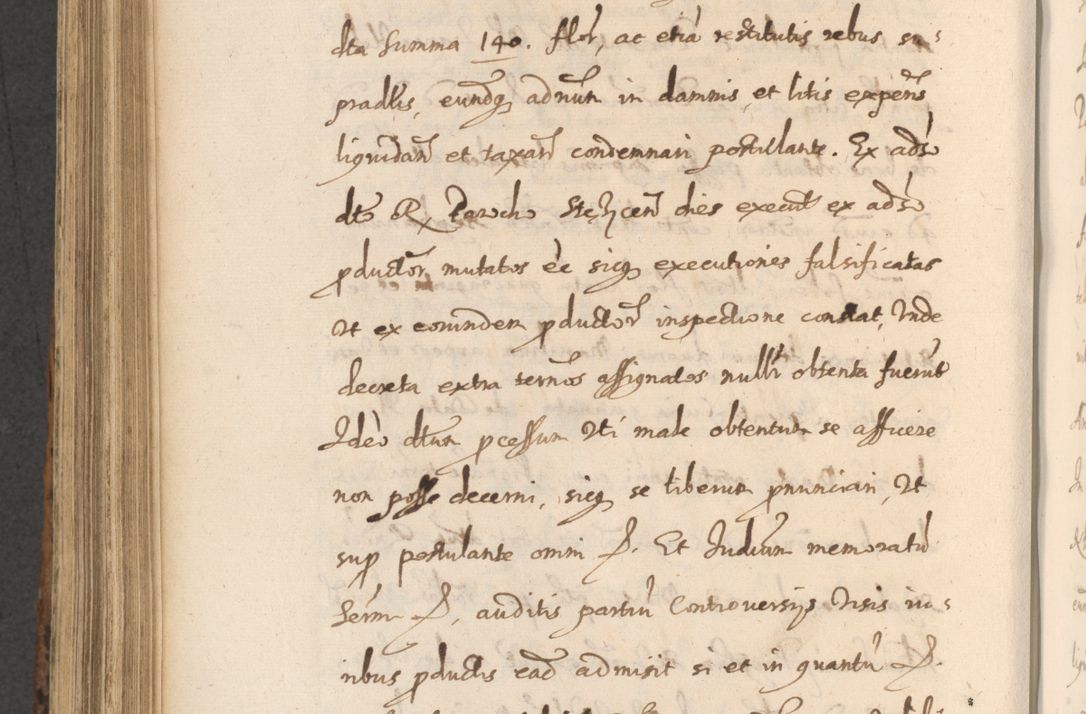 dta Summa 140. flor, ac etiā restitutis rebus su
pradtis, eundq adnum in damnis, et litis expens
liquidan et taxan condemnari postulante. Ex adso
dto R Parocho dies execut ex adso
pductor mutatos ee sicq executiones falsificatas
Ut ex eorundem pductor inspectione constat, Unde
decreta extra termos assignatos nullr obtenta fuerut
Ideo dtum pcessum Uti male obtentum se afficere
non posse decerni, sicq se liberum pnunciari, Ut
sup postulante omni P. Et Judium memoratū
Term P, auditis partiū Controversijs Visis iu
ribus pductis ead admisit si et in quantū P.